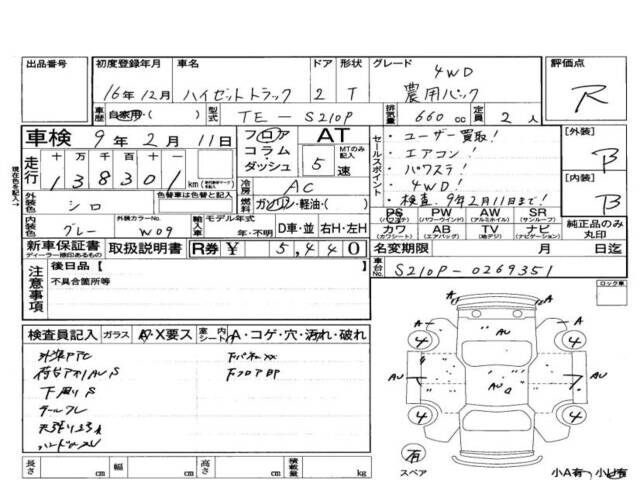 出品番号 初度登録年月 車名 ドア 形状 グレード 評価点
16年12月 ハイゼットトラック 2 T 4WD 農用パック R
車歴 自家用・( ) 型式 TE-S210P 排気量 660 cc 定員 2 人
車検 9年2月11日 フロア コラム・ダッシュ AT MTのみ記入 5 速
走行 十 万 千 百 十 一
138301 km
冷房 AC
燃料 ガソリン・軽油・( )
セールスポイント
・ユーザー買取!
・エアコン!
・パワステ!
・4WD!
・検査 9年2月11日まで!
[外装] B
[内装] B
外装色 シロ 色替車は元色
内装色 グレー 外装カラーNo. W09
輸入車 モデル年式 年・不明 D車・並 右H・左H
PS (パワーステアリング) PW (パワーウインドウ) AW (アルミホイル) SR (サンルーフ)
カワ (カワシート) AB (エアバッグ) TV (地デジ) ナビ (ナビゲーション)
純正品のみ丸印
新車保証書 ディーラー捺印あるもの 取扱説明書 R券 ¥ 5,440
名変期限 月 日迄
車台No. S210P-0269351
注意事項 後日品【 】
不具合箇所等
ロック車
検査員記入 ガラス A・X要ス 室内シート A・コゲ・穴・汚れ・破れ
下回りS
A A A A
AU AU AU AU
4 4 4 4
有
スペア
長さ cm 幅 cm 高さ cm 積載量 kg
小A有